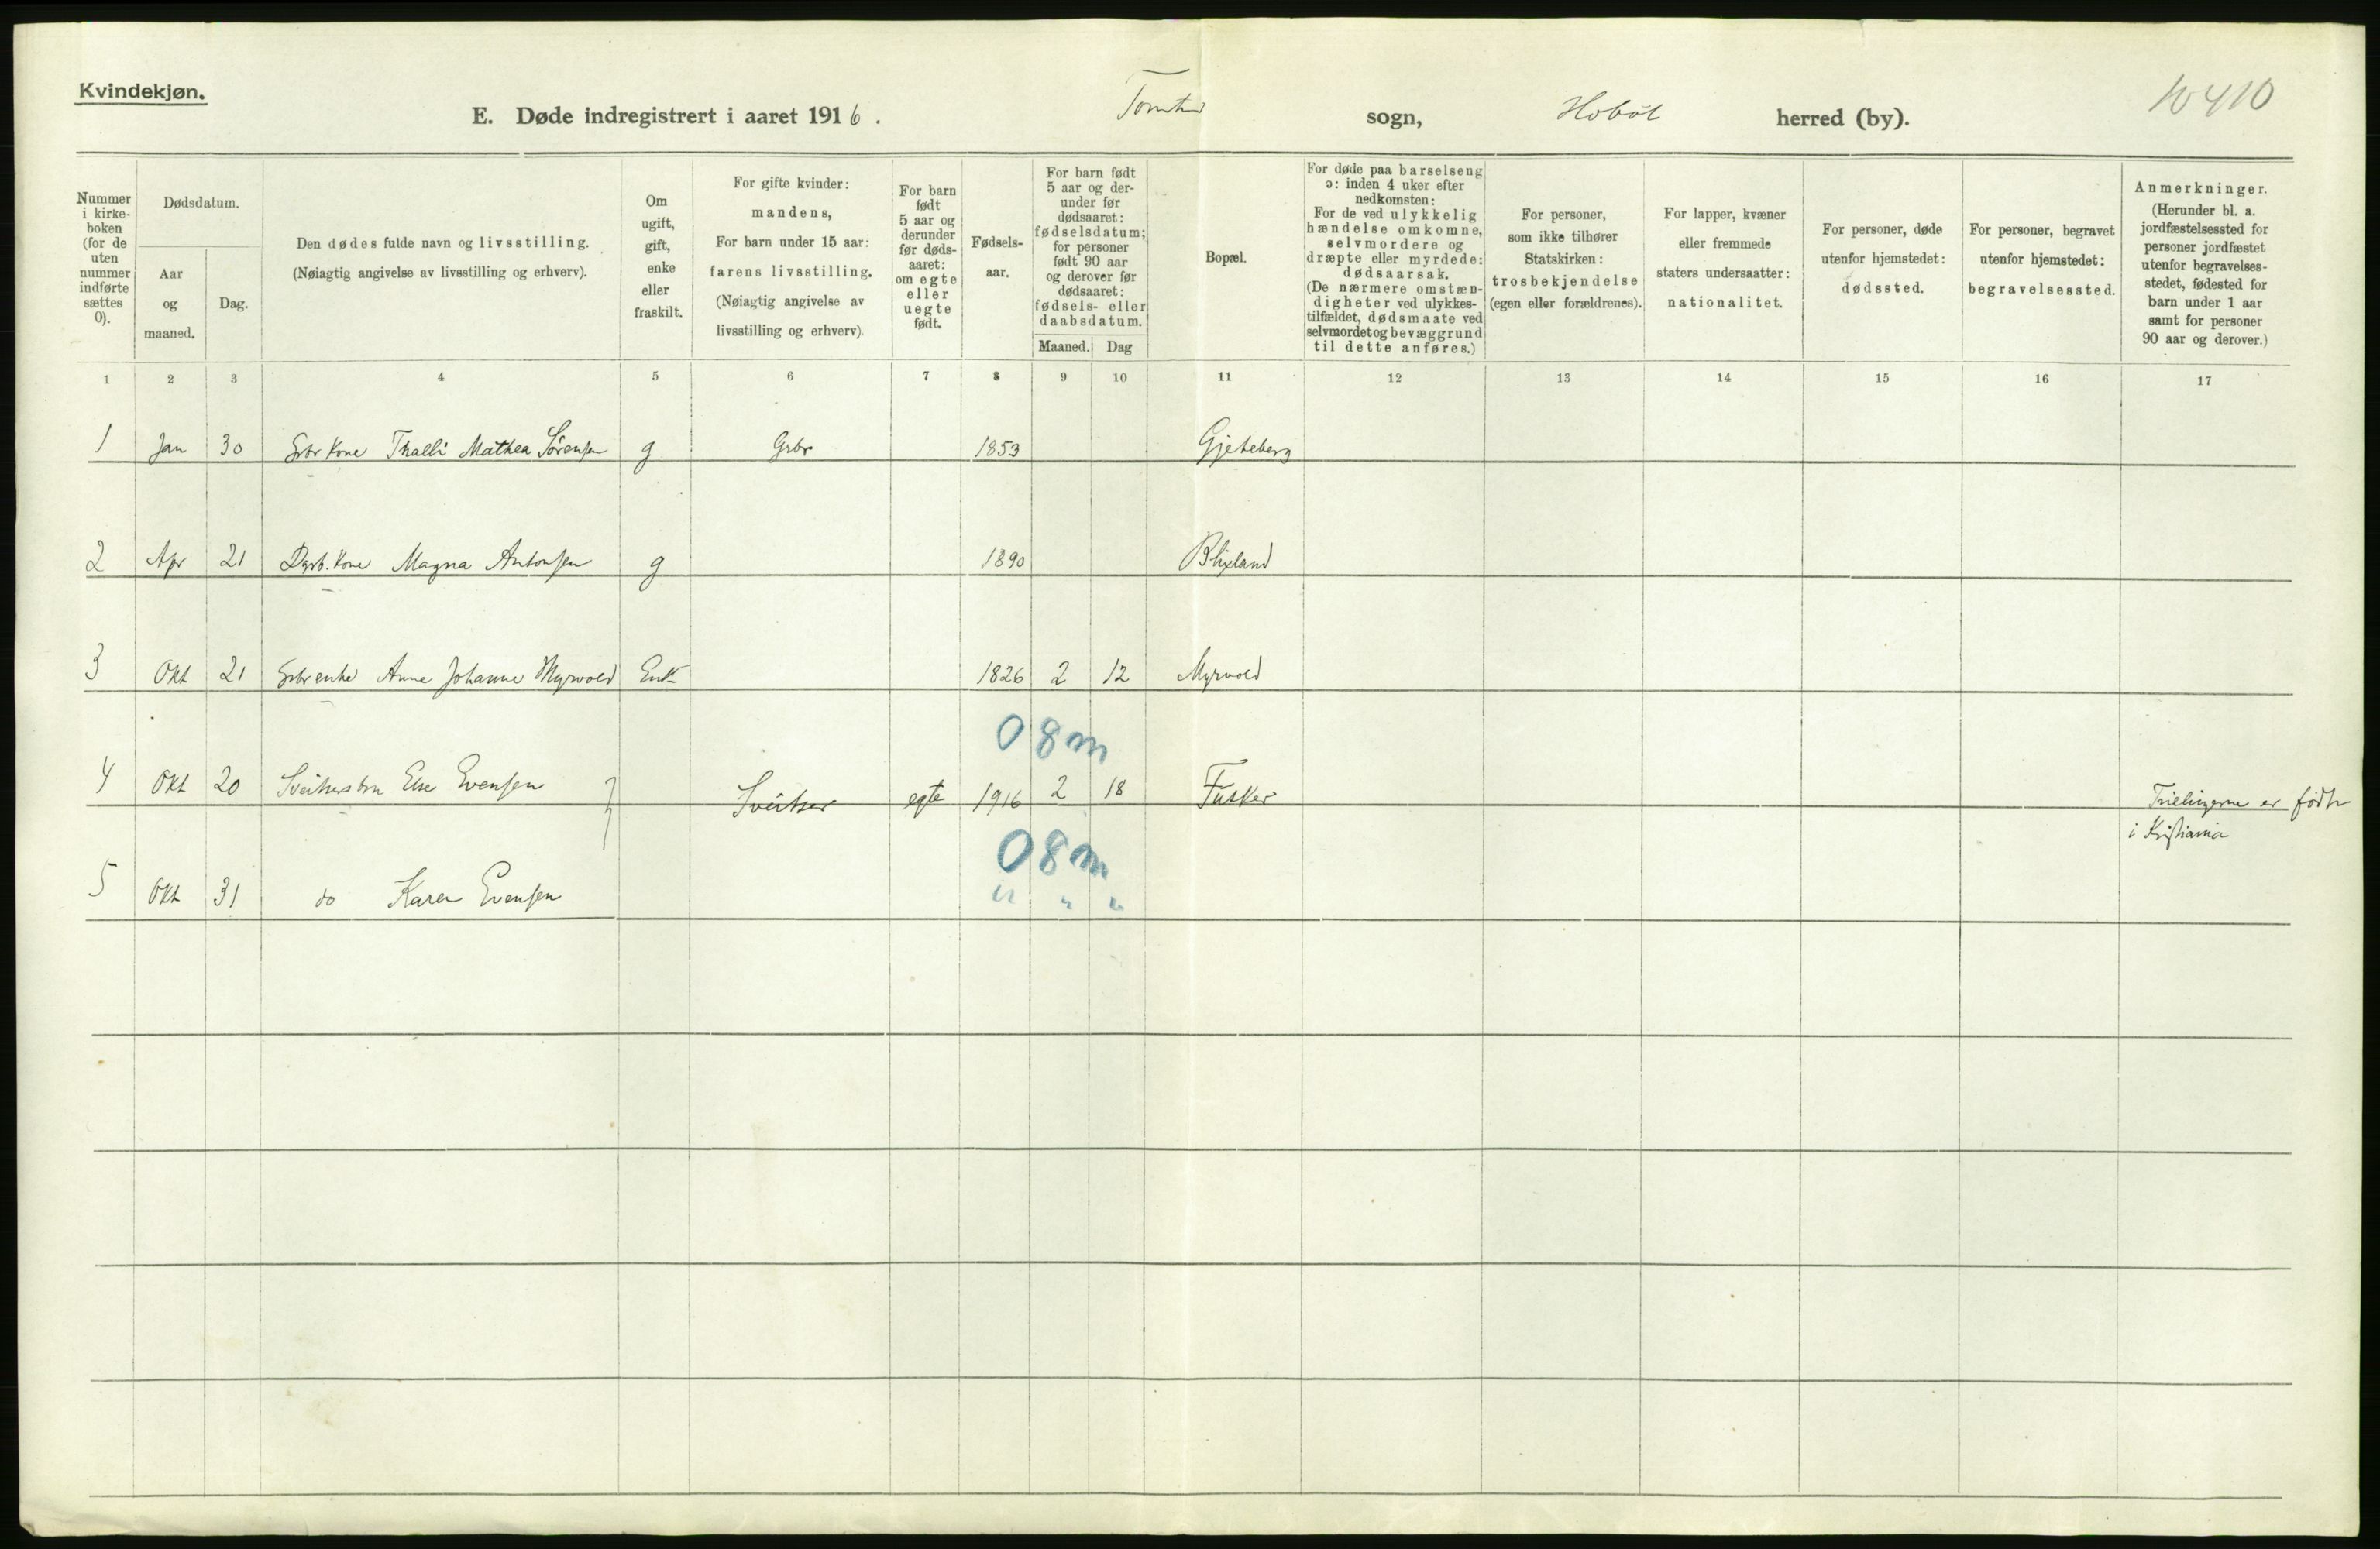 Kvindekjøn.
E. Døde indregistrert i aaret 1916. Tomter sogn, Hobøl herred (by). 10410
Nummer i kirke-boken (for de uten nummer indførte sættes 0).
Dødsdatum.
Aar og maaned.
Dag.
Den dødes fulde navn og livsstilling.
(Nøiagtig angivelse av livsstilling og erhverv).
Om ugift, gift, enke eller fraskilt.
For gifte kvinder:
mandens,
For barn under 15 aar:
farens livsstilling.
(Nøiagtig angivelse av
livsstilling og erhverv)
For barn født 5 aar og derunder før døds-aaret: om egte eller uegte født.
Fødsels-aar.
For barn født
5 aar og der-
under før
dødsaaret:
fødselsdatum;
for personer
født 90 aar
og derover før
dødsaaret:
fødsels- eller
daabsdatum.
Maaned. Dag
Bopæl.
For døde paa barselseng
ɔ: inden 4 uker efter
nedkomsten:
For de ved ulykkelig
hændelse omkomne,
selvmordere og
dræpte eller myrdede:
dødsaarsak.
(De nærmere omstæn-
digheter ved ulykkes-
tilfældet, dødsmaate ved
selvmordet og bevæggrund
til dette anføres.)
For personer,
som ikke tilhører
Statskirken:
trosbekjendelse
(egen eller forældrenes).
For lapper, kvæner
eller fremmede
staters undersaatter:
nationalitet.
For personer, døde
utenfor hjemstedet:
dødssted.
For personer, begravet
utenfor hjemstedet:
begravelsessted.
Anmerkninger.
(Herunder bl. a.
jordfæstelsessted for
personer jordfæstet
utenfor begravelses-
stedet, fødested for
barn under 1 aar
samt for personer
90 aar og derover.)
1 2 3 4 5 6 7 8 9 10 11 12 13 14 15 16 17
1 Jan 30 Gbr kone Thalli Mathea Sørensen g Gbr 1853 Gjeteberg
2 Apr 21 kone Magna Antonsen g 1890 Blixland
3 Okt 21 Gbr enke Anne Johanne Myrvold Enk 1826 2 12 Myrvold
08m
4 Okt 20 Sveitsers brn Else Evensen } Sveitser egte 1916 2 18 Fusker Trillingerne er født
i Kristiania
08m
5 Okt 31 do Karen Evensen " " "